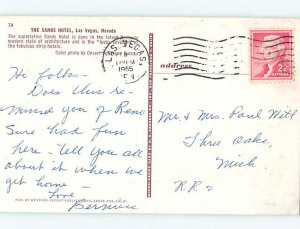 7A
THE SANDS HOTEL, Las Vegas, Nevada
The superlative Sands Hotel is done in the
modern style of architecture and is the
the fabulous strip hotels.
Color photo by
LAS VEGAS,
1955
NEV
address
Hi folks -
Does this re-
mind you of Reno
Sure had fun
here - Tell you all
about it when we
get home -
Love
Bernice
Mr & Mrs. Paul Witt
Three Oaks,
Mich
R.R 2